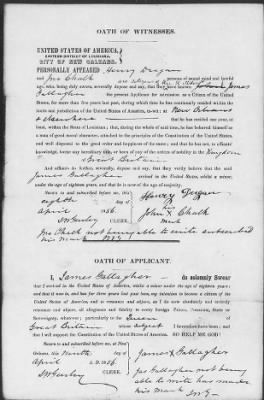 OATH OF WITNESSES.
UNITED STATES OF AMERICA,
EASTERN DISTRICT OF LOUISIANA,
CITY OF NEW ORLEANS.
PERSONALLY APPEARED Henry
and Jno Chalk persons of sound mind and lawful
age, who, being duly sworn, severally depose and say, that they have known
Gallagher the present Applicant for Admission as a Citizen of the United
States, for more than five years last past, during which time he has continually resided within the
limits and jurisdiction of the United States of America, to-wit: at New Orleans
& elsewhere that he has resided one year, at least,
within the State of Louisiana; that, during the whole of said time, he has behaved himself as
a man of good moral character, attached to the principles of the Constitution of the United States,
and well disposed to the good order and happiness of the same; and that he has not, to affiants'
knowledge, borne any hereditary title, or been of any of the orders of nobility in the Kingdom
of Great Britain
And affiants do further, severally, depose and say, that they verily believe that the said
James Gallagher arrived in the United States, whilst a minor,
under the age of eighteen years, and that he is now of the age of majority.
Sworn to and subscribed before me, this
eighth day of
April 1858
CLERK.
Henry
his
John X Chalk
mark
Jno Chalk not being able to write subscribed
his mark
OATH OF APPLICANT.
I, James Gallagher do solemnly Swear
that I arrived in the United States of America, whilst a minor, under the age of eighteen years;
and that it now is, and has for three years last past been, my intention to become a citizen of
the United States, and to renounce and abjure, as I do now absolutely and entirely
renounce and abjure, all allegiance and fidelity to every foreign Prince, Potentate, State or
Sovereignty, whatever; particularly to the Queen of
Great Britain whose subject I heretofore have been; and
that I will support the Constitution of the United States. SO HELP ME GOD!
Sworn to and subscribed before me, at New
Orleans, this day of
April A. D. 1858
CLERK.
James X Gallagher
Jas Gallagher not being
able to write has made
his mark